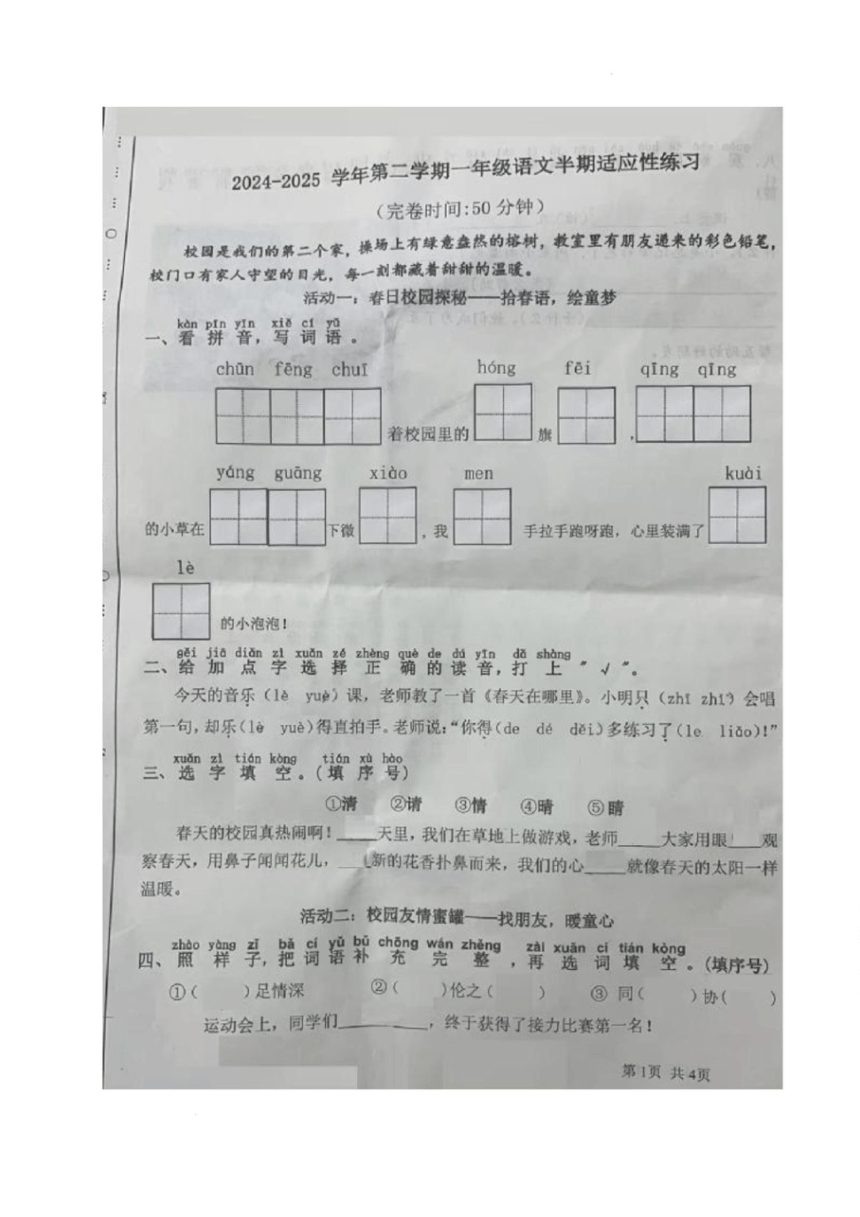 2024-2025 学年第二学期一年级语文半期适应性练习
（完卷时间:50 分钟）
校园是我们的第二个家，操场上有绿意盎然的榕树，教室里有朋友递来的彩色铅笔，
校门口有家人守望的目光，每一刻都藏着甜甜的温暖。
活动一：春日校园探秘——拾春语，绘童梦
kàn pīn yīn xiě cí yǔ
一、看 拼 音，写 词 语 。
chūn fēng chuī hóng fēi qīng qīng
着校园里的 旗 ，
yáng guāng xiào men kuài
的小草在 下微 ，我 手拉手跑呀跑，心里装满了
lè
的小泡泡！
gěi jiā diǎn zì xuǎn zé zhèng què de dú yīn dǎ shàng
二、给 加 点 字 选 择 正 确 的 读 音，打 上 “ √ ”。
今天的音乐（lè yuè）课，老师教了一首《春天在哪里》。小明只（zhī zhǐ）会唱
第一句，却乐（lè yuè）得直拍手。老师说：“你得（de dé děi）多练习了（le liǎo）！”
xuǎn zì tián kòng tián xù hào
三、选 字 填 空 。（填 序 号）
①清 ②请 ③情 ④晴 ⑤睛
春天的校园真热闹啊！____天里，我们在草地上做游戏，老师____大家用眼____观
察春天，用鼻子闻闻花儿，____新的花香扑鼻而来，我们的心____就像春天的太阳一样
温暖。
活动二：校园友情蜜罐——找朋友，暖童心
zhào yàng zǐ bǎ cí yǔ bǔ chōng wán zhěng zài xuǎn cí tián kòng
四、照 样 子，把 词 语 补 充 完 整 ，再 选 词 填 空 。（填序号）
①（ ）足情深 ②（ ）伦之（ ） ③ 同（ ）协（ ）
运动会上，同学们________，终于获得了接力比赛第一名！
第 1页 共 4页